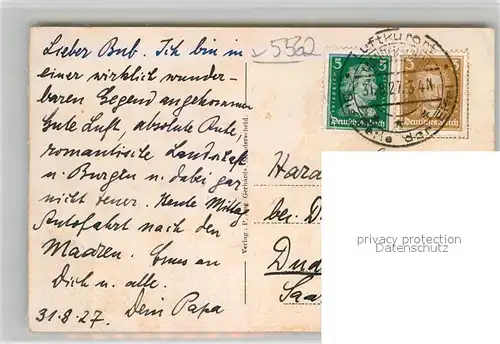 Lieber Bub. Ich bin in
einer wirklich wunder-
baren Gegend angekommen
Gute Luft, absolute Ruhe,
romantische Landschaft
u. Burgen u. dabei gar
nicht teuer. Heute Mittag
Autofahrt nach den
Maaren. Gruss an
Dich u. alle.
31.8.27. Dein Papa
5562
5 5
Deutsches Reich
3 3
Deutsches Reich
Luftkurort
Verlag: Gerhards
Hara
bei D
Dud
Saa
privacy protection
Datenschutz